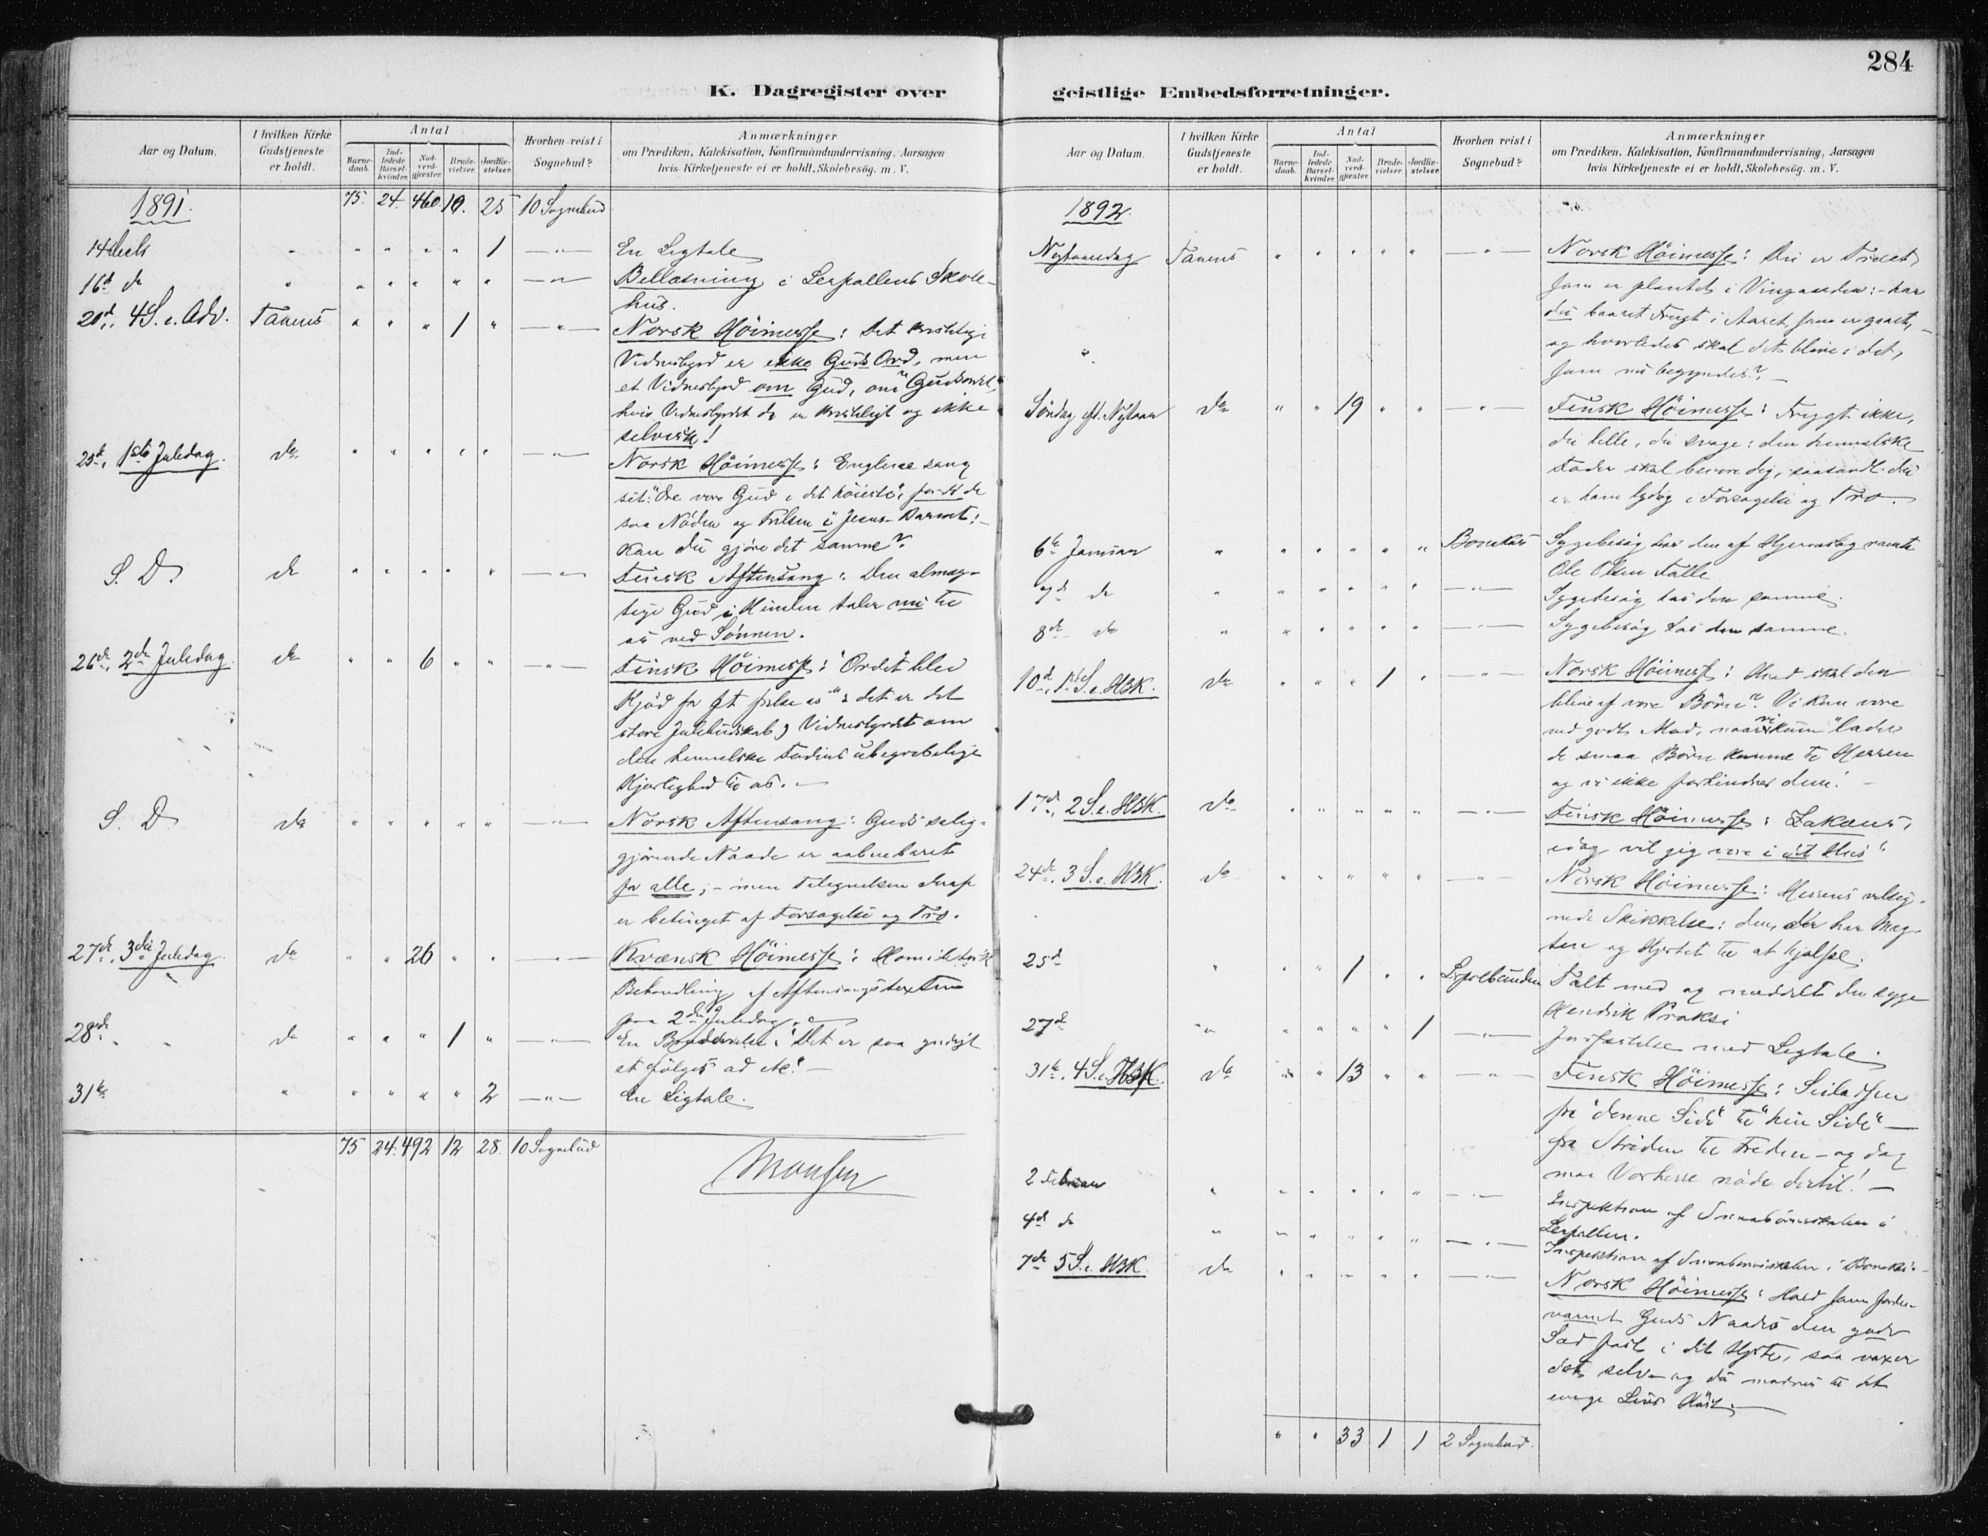 284
K. Dagregister over geistlige Embedsforretninger.
Aar og Datum.
I hvilken Kirke Gudstjeneste er holdt.
Antal
Barnedaab.
Indledede Barselkvinder.
Nadverdgjæster.
Brudevielser.
Jordfæstelser.
Hvorhen reist i Sognebud?
Anmærkninger
om Prædiken, Katekisation, Konfirmandundervisning, Aarsagen
hvis Kirketjeneste ei er holdt, Skolebesøg. m. V.
1891 75. 24. 460 10. 25 10 Sognebud
14de " " " " " 1 —"— En Ligtale
16d do " " " " " " —"— Bellæsning i Leirpollens Skole-
hus.
20d, 4 S. e. Adv. Tanens " " " 1 " —"— Norsk Höimesse: Det kristelige
Vidnesbyrd er ikke Guds Ord, men
et Vidnesbyrd om Gud, om "Gudsordet",
hvis Vidnesbyrdet da er kristeligt og ikke
selvisk!
25d, 1ste Juledag. do " " " " " —"— Norsk Höimesse: Englene sang
sit: "Ære være Gud i det höieste", fordi de
saa Nåden og Frelsen i Jesus-Barnet:
Kan du gjöre det samme?
S. D. do " " " " " —"— Finsk Aftensang: Den almæg-
tige Gud i Himlen taler nu til
os ved Sönnen.
26de, 2den Juledag. do " " 6 " " —"— Finsk Höimesse: "Ordet blev
Kjöd for at frelse os": det er det
store Julebudskab, Vidnesbyrdet om
den himmelske Faders ubegribelige
Kjærlighed til os. —
S. D. do " " " " " Norsk Aftensang: Guds salig-
gjörende Naade er aabenbaret
for alle; – men Tilegnelsen deraf
er betinget af Forsagelse og Tro.
27de, 3die Juledag. do " " 26 " " —"— Kvænsk Höimesse: Homiletisk
Behandling af Aftensangstexten
paa 2den Juledag.
28de " do " " " 1 " —"— En Brudevielse: "Det er saa yndigt
at fölges ad etc." —
31te " " " " " 2 —"— En Ligtale.
75 24. 492 12 28. 10 Sognebud
Monsen
Aar og Datum.
I hvilken Kirke Gudstjeneste er holdt.
Antal
Barnedaab.
Indledede Barselkvinder.
Nadverdgjæster.
Brudevielser.
Jordfæstelser.
Hvorhen reist i Sognebud?
Anmærkninger
om Prædiken, Katekisation, Konfirmandundervisning, Aarsagen
hvis Kirketjeneste ei er holdt, Skolebesøg. m. V.
1892.
Nytaarsdag Tanens " " " " " —"— Norsk Höimesse: Du er Træet,
som er plantet i Vingaarden: – har
du baaret Frugt i Aaret, som er gaaet,
og hvorledes skal det blive i det,
som nu begyndes? —
Söndag eft. Nytaar do " " 19 " " —"— Finsk Höimesse: Frygt ikke,
du lille, du svage: den himmelske
Fader skal bevare dig, saasandt du
er ham lydig i Forsagelse og Tro.
6te Januar " " " " " " Bonakas Sygebesög hos den af Hjerneslag ramte
Ole Olsen Falle.
7de do " " " " " " —"— Sygebesög hos den samme.
8de do " " " " " —"— Sygebesög hos den samme.
10d, 1ste S. e. H3K. do " " " 1 " —"— Norsk Höimesse: Hvad skal der
blive af vore Börn? Vi kan være
ved godt Mod, naar vi kun "lade
de smaa Börn komme til Herren
og vi ikke forhindrer dem!" —
17de, 2 S. e. H3K. do " " " " " —"— Finsk Höimesse: Zakæus,
idag vil jeg være i dit Hus!
24de, 3 S. e. H3K. do " " " " " Norsk Höimesse: Herrens velsig-
nede Skikkelse: den, der har Mag-
ten og Hjertet til at hjælpe.
25d " " " 1 " " Leirpolbunden Talt med og meddelt den syge
Hendrik
27de " " " " " 1 —"— Jordfæstelse med Ligtale.
31te, 4 S. e. H3K. do " " 13 " " —"— Finsk Höimesse: Seiladsen
fra "denne Side" til "hin Side" —
fra Striden til Freden – og dog
maa Vorherre nöde dertil! —
2 Februar " " " " " " —"— Inspektion af Smaabörnsskolen i
Leirpollen.
4d do " " " " " " —"— Inspektion af Smaabörnsskolen i Bonakas.
7de 5 S. e. H3K. do " " " " " —"— Norsk Höimesse: Hold som Jorden
varmt Guds Naades den gode
Sæd fast i dit Hjerte, saa voxer
det selv – og du modnes til det
evige Livs Höst. —
" " 33 1 1 2 Sognebud.